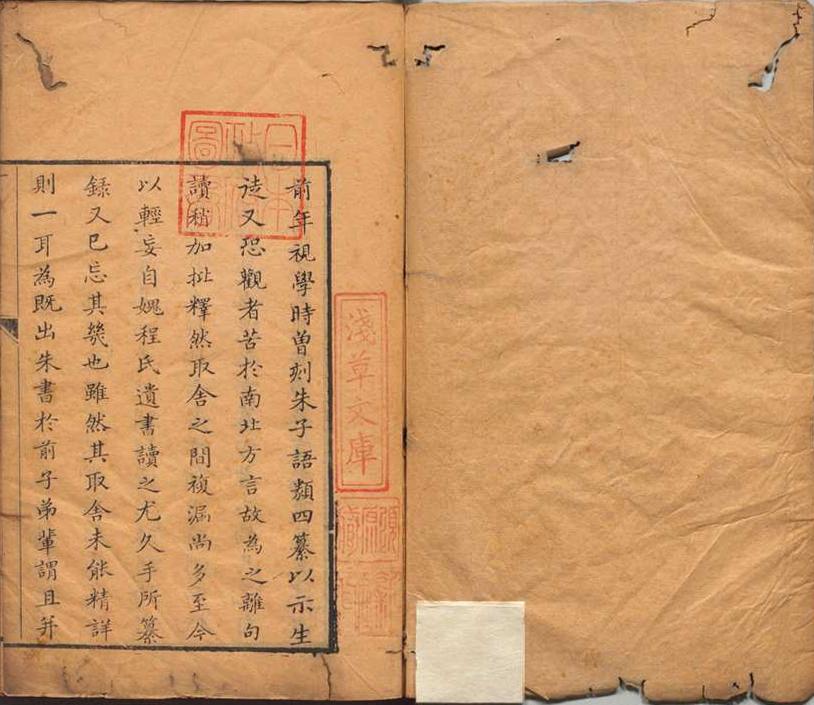 前年視學時曽刻朱子語類四纂以示生
徒又恐觀者苦於南北方言故為之離句
讀稍加批釋然取舍之間複漏尚多至今
以輕妄自媿程氏遺書讀之尤久手所纂
錄又已忘其幾也雖然其取舍未能精詳
則一耳為既出朱書於前子弟輩謂且并
淺草文庫